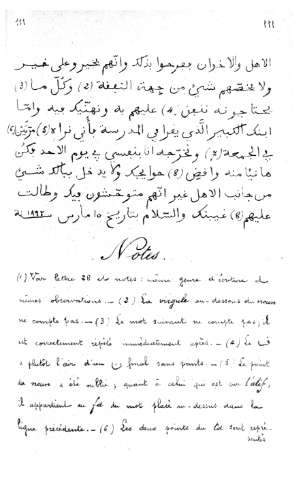 ١١١ 111
الاهل والاخوان يفرحوا بذلك وانهم بخير وعلى خير
ولا يخصهم شيئ من جهة النفقة (2) وكل ما (3)
يحتاجونه ننفق (4) عليهم به ونهتيك فيه واما
ابنك الكبير الذي يقرا في المدرسة يأتي نراه (5) مرتين (6)
في الجمعة (7) ونخرجه انا بنفسي في يوم الاحد وكن
هانيا منه واقض (8) حوايجك ولا يدخل ببالك شيئ
من جانب الاهل غير انهم متوحشون بيك وطالت
عليهم (8) غيبتك والسلام بتاريخ ١٥ مارس سنة
Notes.
(1) Voir lettre 28 et notes: même genre d'écriture et
mêmes observations. — (2) La virgule au-dessous du
ne compte pas. — (3) Le mot suivant ne compte pas; il
est correctement répété immédiatement après. — (4) Le ف
a plutôt l'air d'un ن final sans points. — (5) Le point
du a été oublié; quant à celui qui est sur l'alif,
il appartient au du mot placé au-dessus dans la
ligne précédente. — (6) Les deux points du sont repré-
sentés